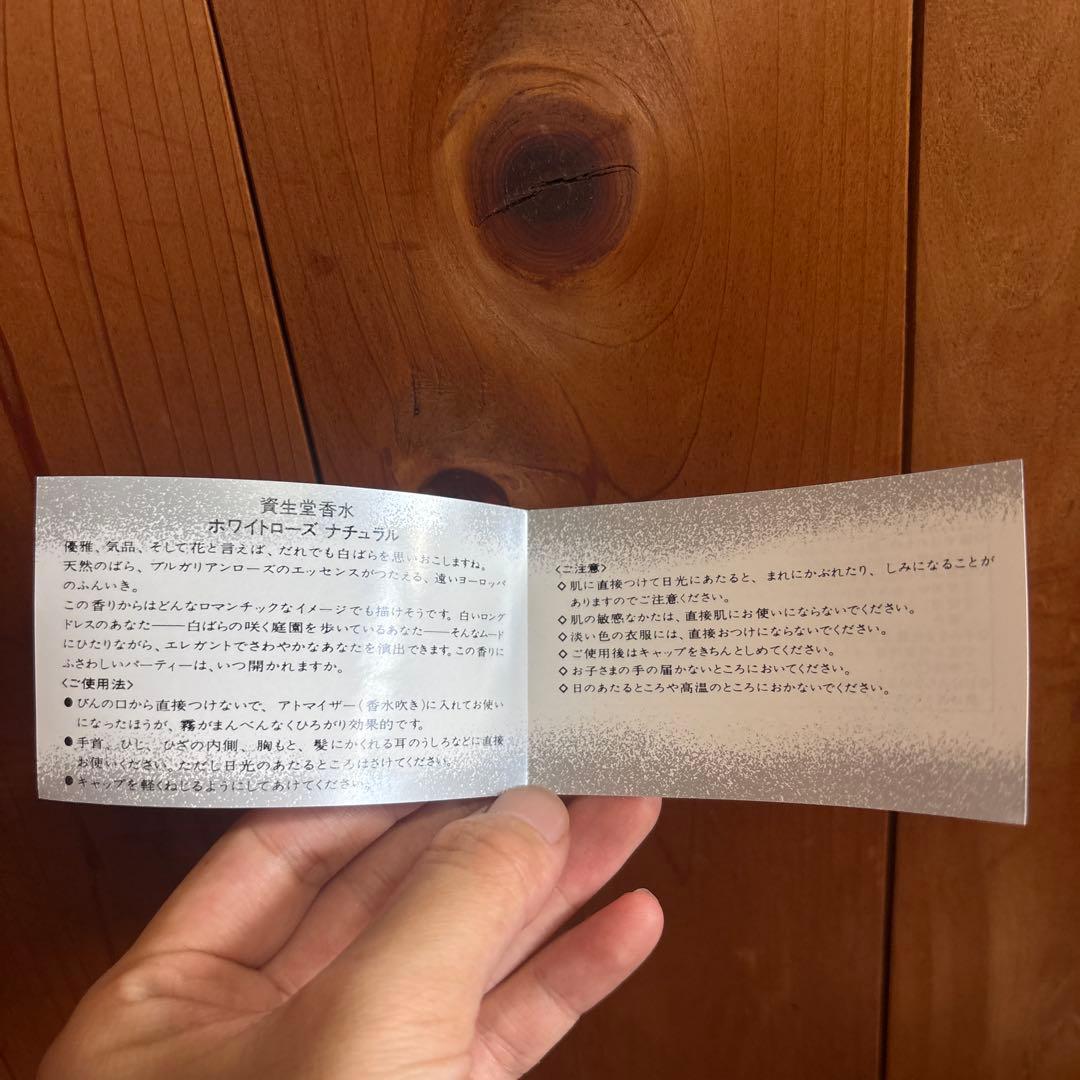 資生堂香水
ホワイトローズ ナチュラル
優雅、気品、そして花と言えば、だれでも白ばらを思いおこしますね。
天然のばら、ブルガリアンローズのエッセンスがつたえる、遠いヨーロッパ
のふんいき。
この香りからはどんなロマンチックなイメージでも描けそうです。白いロング
ドレスのあなた——白ばらの咲く庭園を歩いているあなた——そんなムード
にひたりながら、エレガントでさわやかなあなたを演出できます。この香りに
ふさわしいパーティーは、いつ開かれますか。
〈ご使用法〉
●びんの口から直接つけないで、アトマイザー(香水吹き)に入れてお使い
になったほうが、霧がまんべんなくひろがり効果的です。
●手首、ひじ、ひざの内側、胸もと、髪にかくれる耳のうしろなどに直接
お使いください。ただし日光のあたるところはさけてください。
●キャップを軽くねじるようにしてあけてください。
〈ご注意〉
◇肌に直接つけて日光にあたると、まれにかぶれたり、しみになることが
ありますのでご注意ください。
◇肌の敏感なかたは、直接肌にお使いにならないでください。
◇淡い色の衣服には、直接おつけにならないでください。
◇ご使用後はキャップをきちんとしめてください。
◇お子さまの手の届かないところにおいてください。
◇日のあたるところや高温のところにおかないでください。